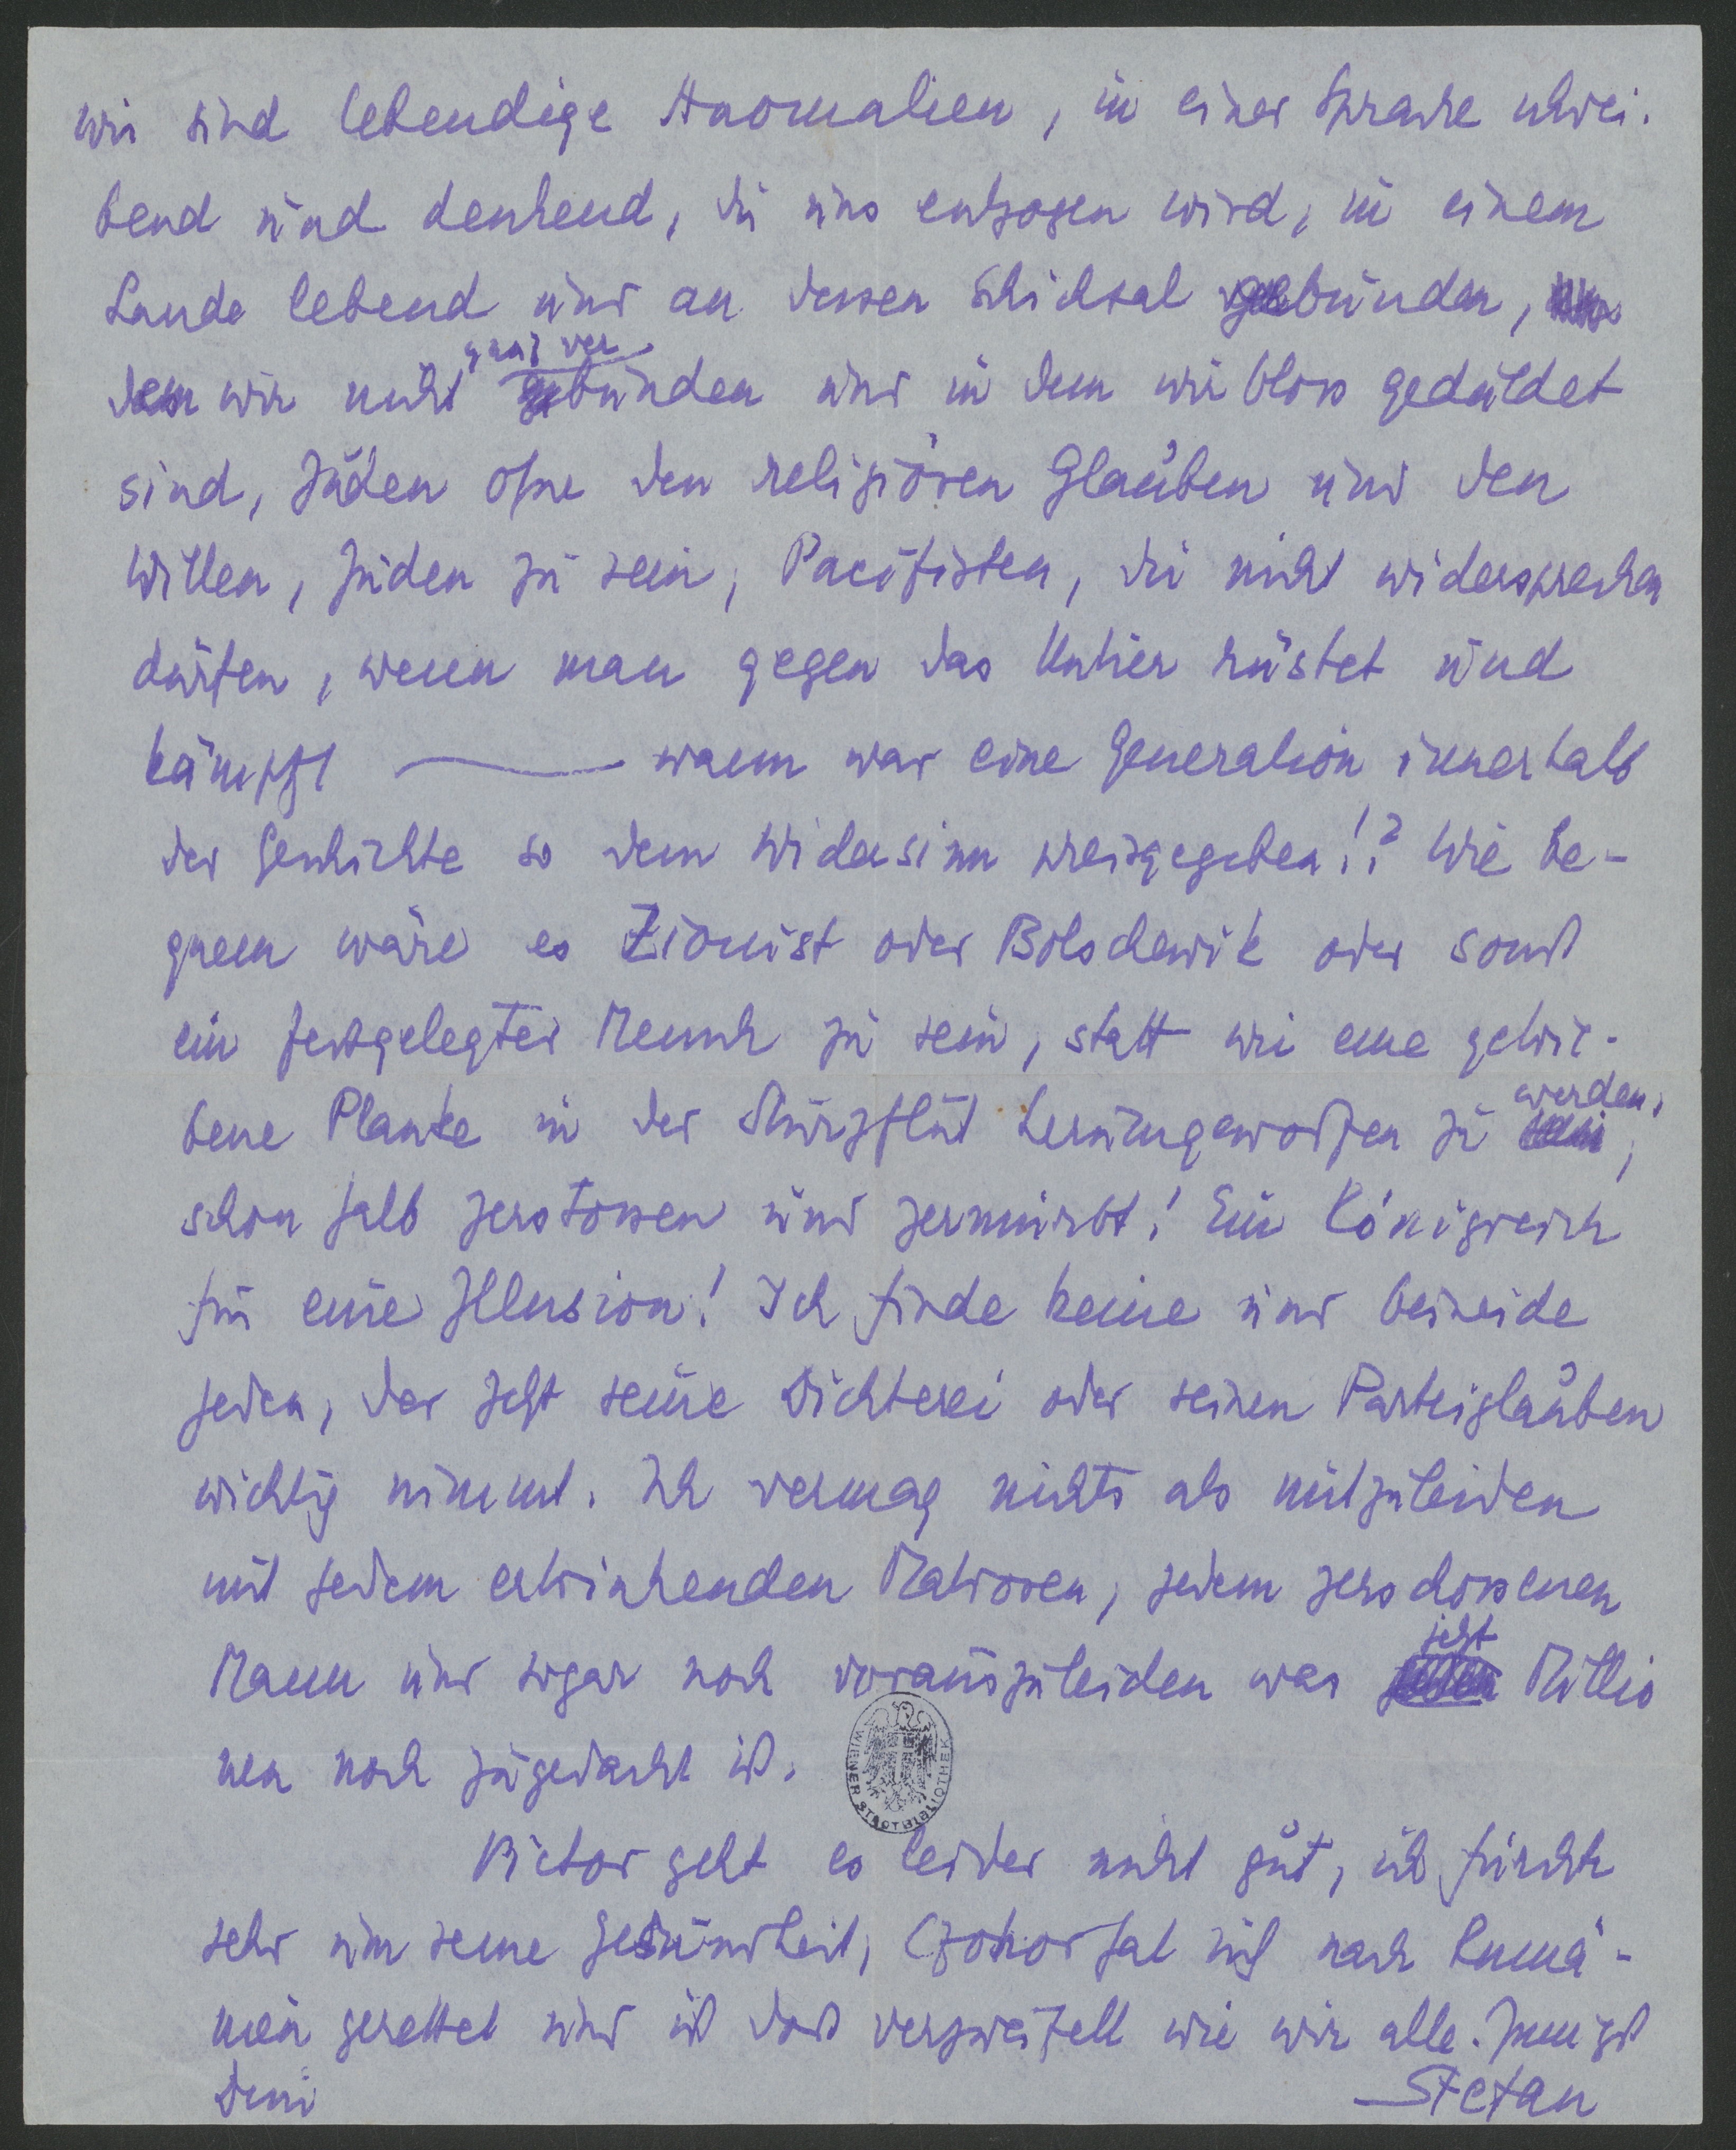 wir sind lebendige Anomalien, in einer Sprache schrei-
bend und denkend, die uns entzogen wird, in einem
Lande lebend und an dessen Schicksal gebunden,
dem wir nicht ganz verbunden und in dem wir bloss geduldet
sind, Juden ohne den religiösen Glauben und den
Willen, Juden zu sein, Pacifisten, die nicht widersprechen
dürfen, wenn man gegen das Untier rüstet und
kämpft — wann war eine Generation innerhalb
der Geschichte so dem Widersinn preisgegeben!? Wie be-
quem wäre es Zionist oder Bolschewik oder sonst
ein festgelegter Mensch zu sein, statt wie eine getrie-
bene Planke in der Sturzflut herumgeworfen zu werden,
schon halb zerstossen und zermürbt! Ein Königreich
für eine Illusion! Ich finde keine und beneide
jeden, der jetzt seine Dichterei oder seinen Parteiglauben
wichtig nimmt. Ich vermag nichts als mitzuleiden
mit jedem ertrinkenden Matrosen, jedem zerschossenen
Mann und sogar noch vorauszuleiden was jetzt Millio
nen noch zugedacht ist.
WIENER STADTBIBLIOTHEK
Victor geht es leider nicht gut, ich fürchte
sehr um seine Gesundheit, Czokor hat sich nach Rumä-
nien gerettet und ist dort verzweifelt wie wir alle. Innigst
Dein Stefan